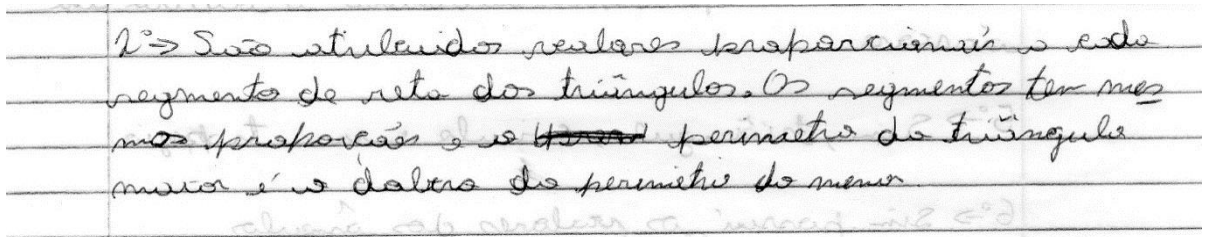 2º => São atribuidos valores proporcionais a cada
segmento de reta dos triângulos. Os segmentos tem mes
mas proporção e o perimetro do triângulo
maior é o dobro do perimetro do menor.